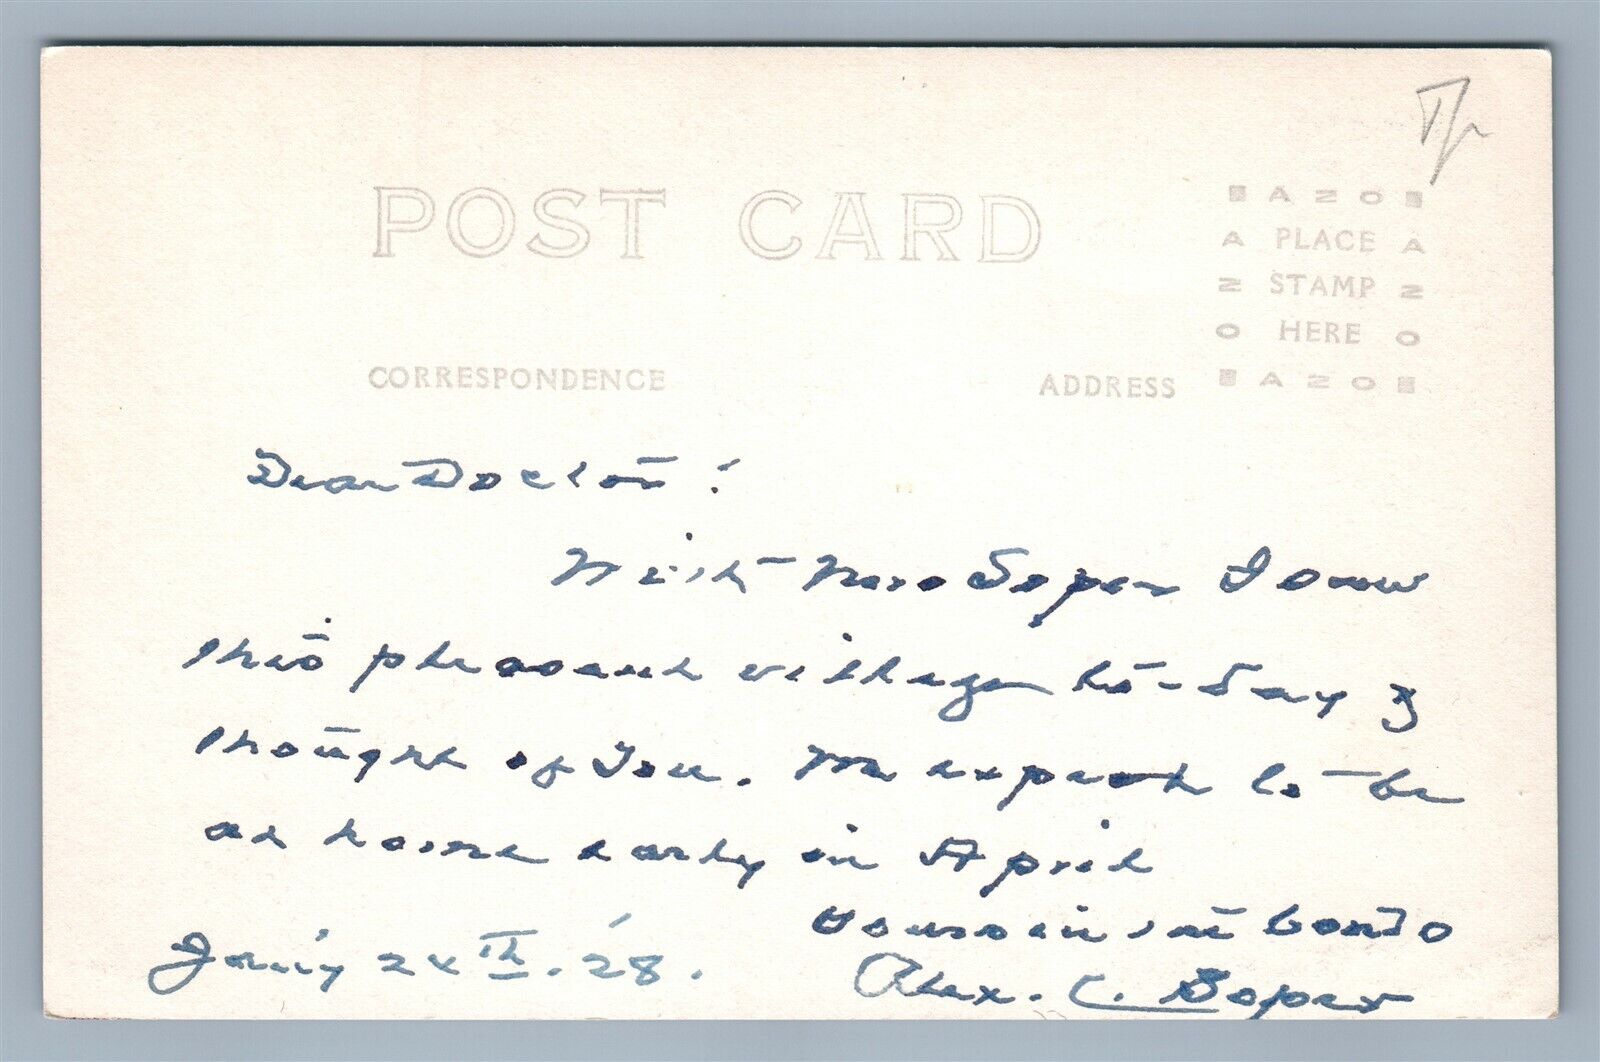 POST CARD
AZO
A PLACE A
Z STAMP Z
O HERE O
CORRESPONDENCE
ADDRESS
AZO
Dear Doctor:
With Mrs Soper I saw
this pleasant village to-day &
thought of You. We expect to be
at home early in April
Yours in the bonds
Jan'y 24th. '28.
Alex. C. Soper